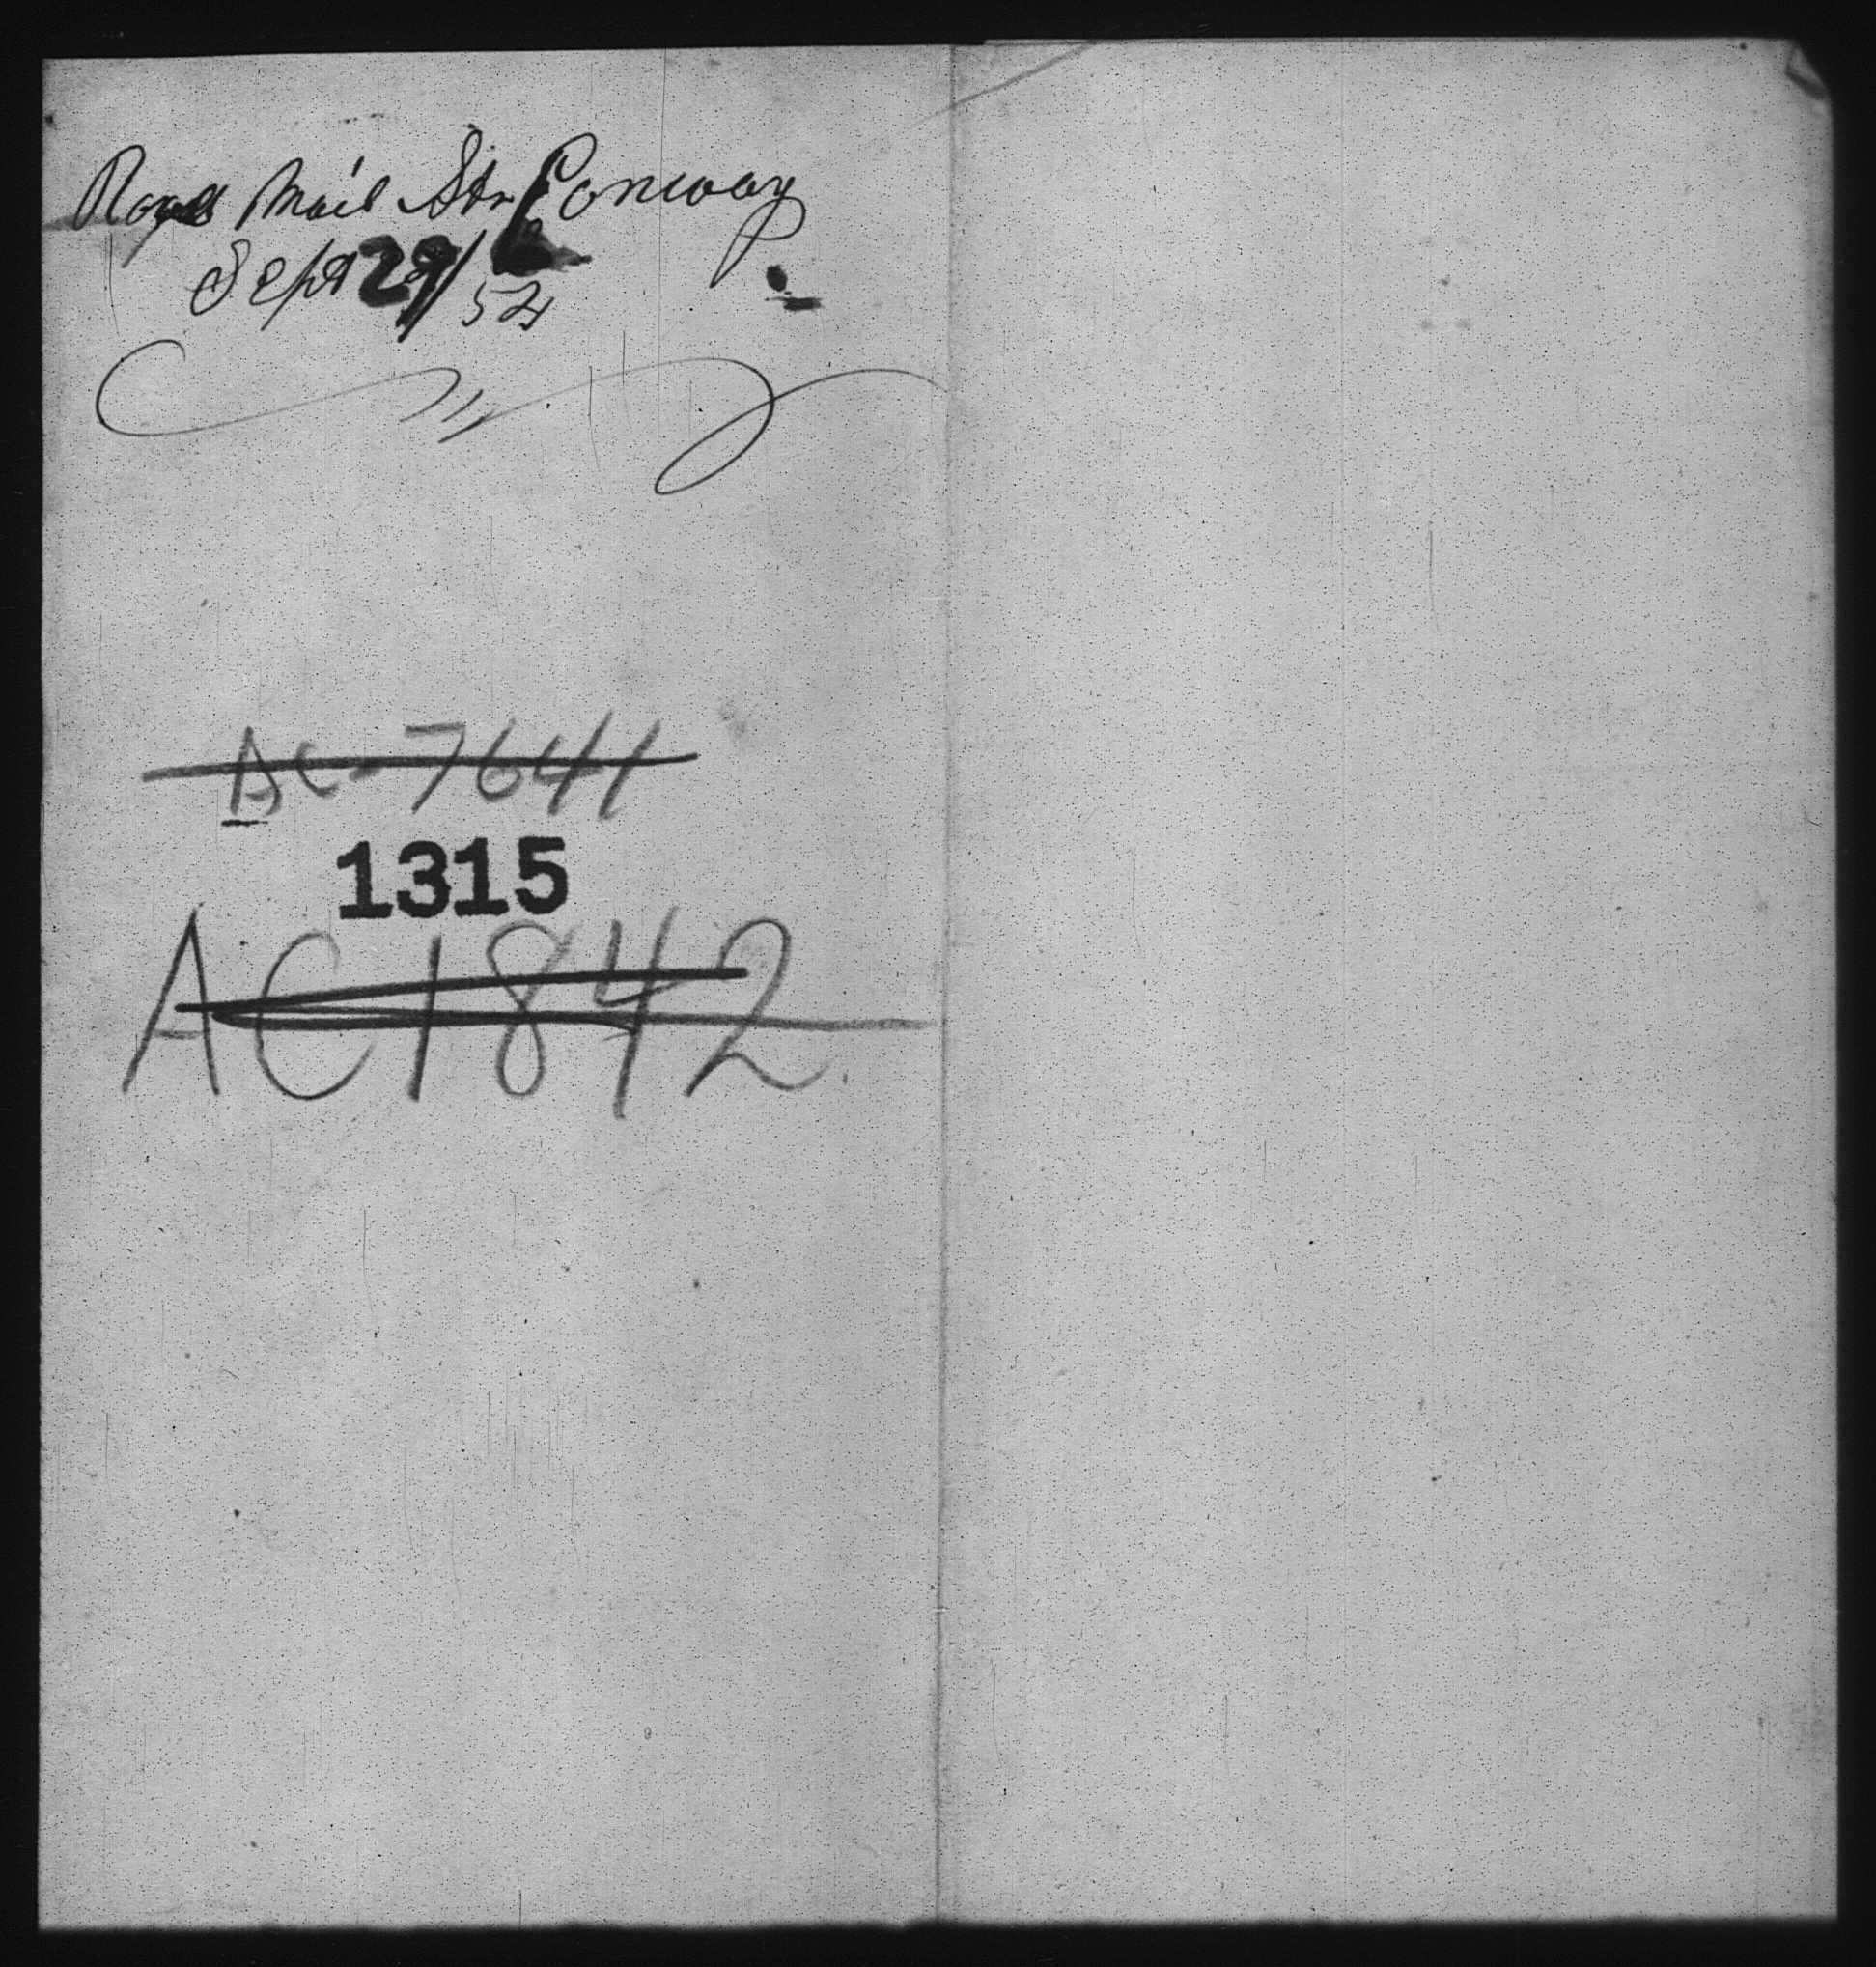 Royal Mail Str Conway
Sept 29/54
AC-7641
1315
AC1842